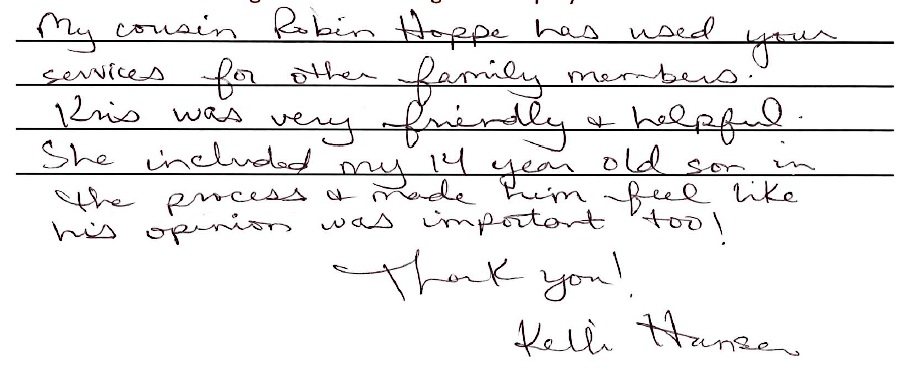 My cousin Robin Hoppe has used your
services for other family members.
Kris was very friendly & helpful.
She included my 14 year old son in
the process & made him feel like
his opinion was important too!
Thank you!
Kelli Hansen